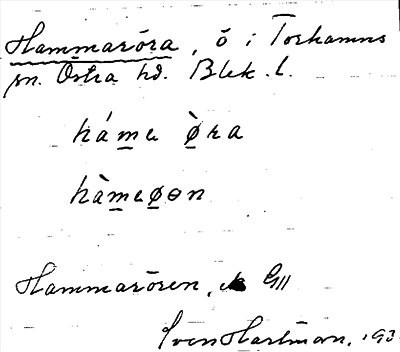 Hammaröra, ö i Torhamns
sn. Östra hd. Blek. l.
háme øra
hàmeøɵn
Hammarören, ek GII
Sven Hartman, 193